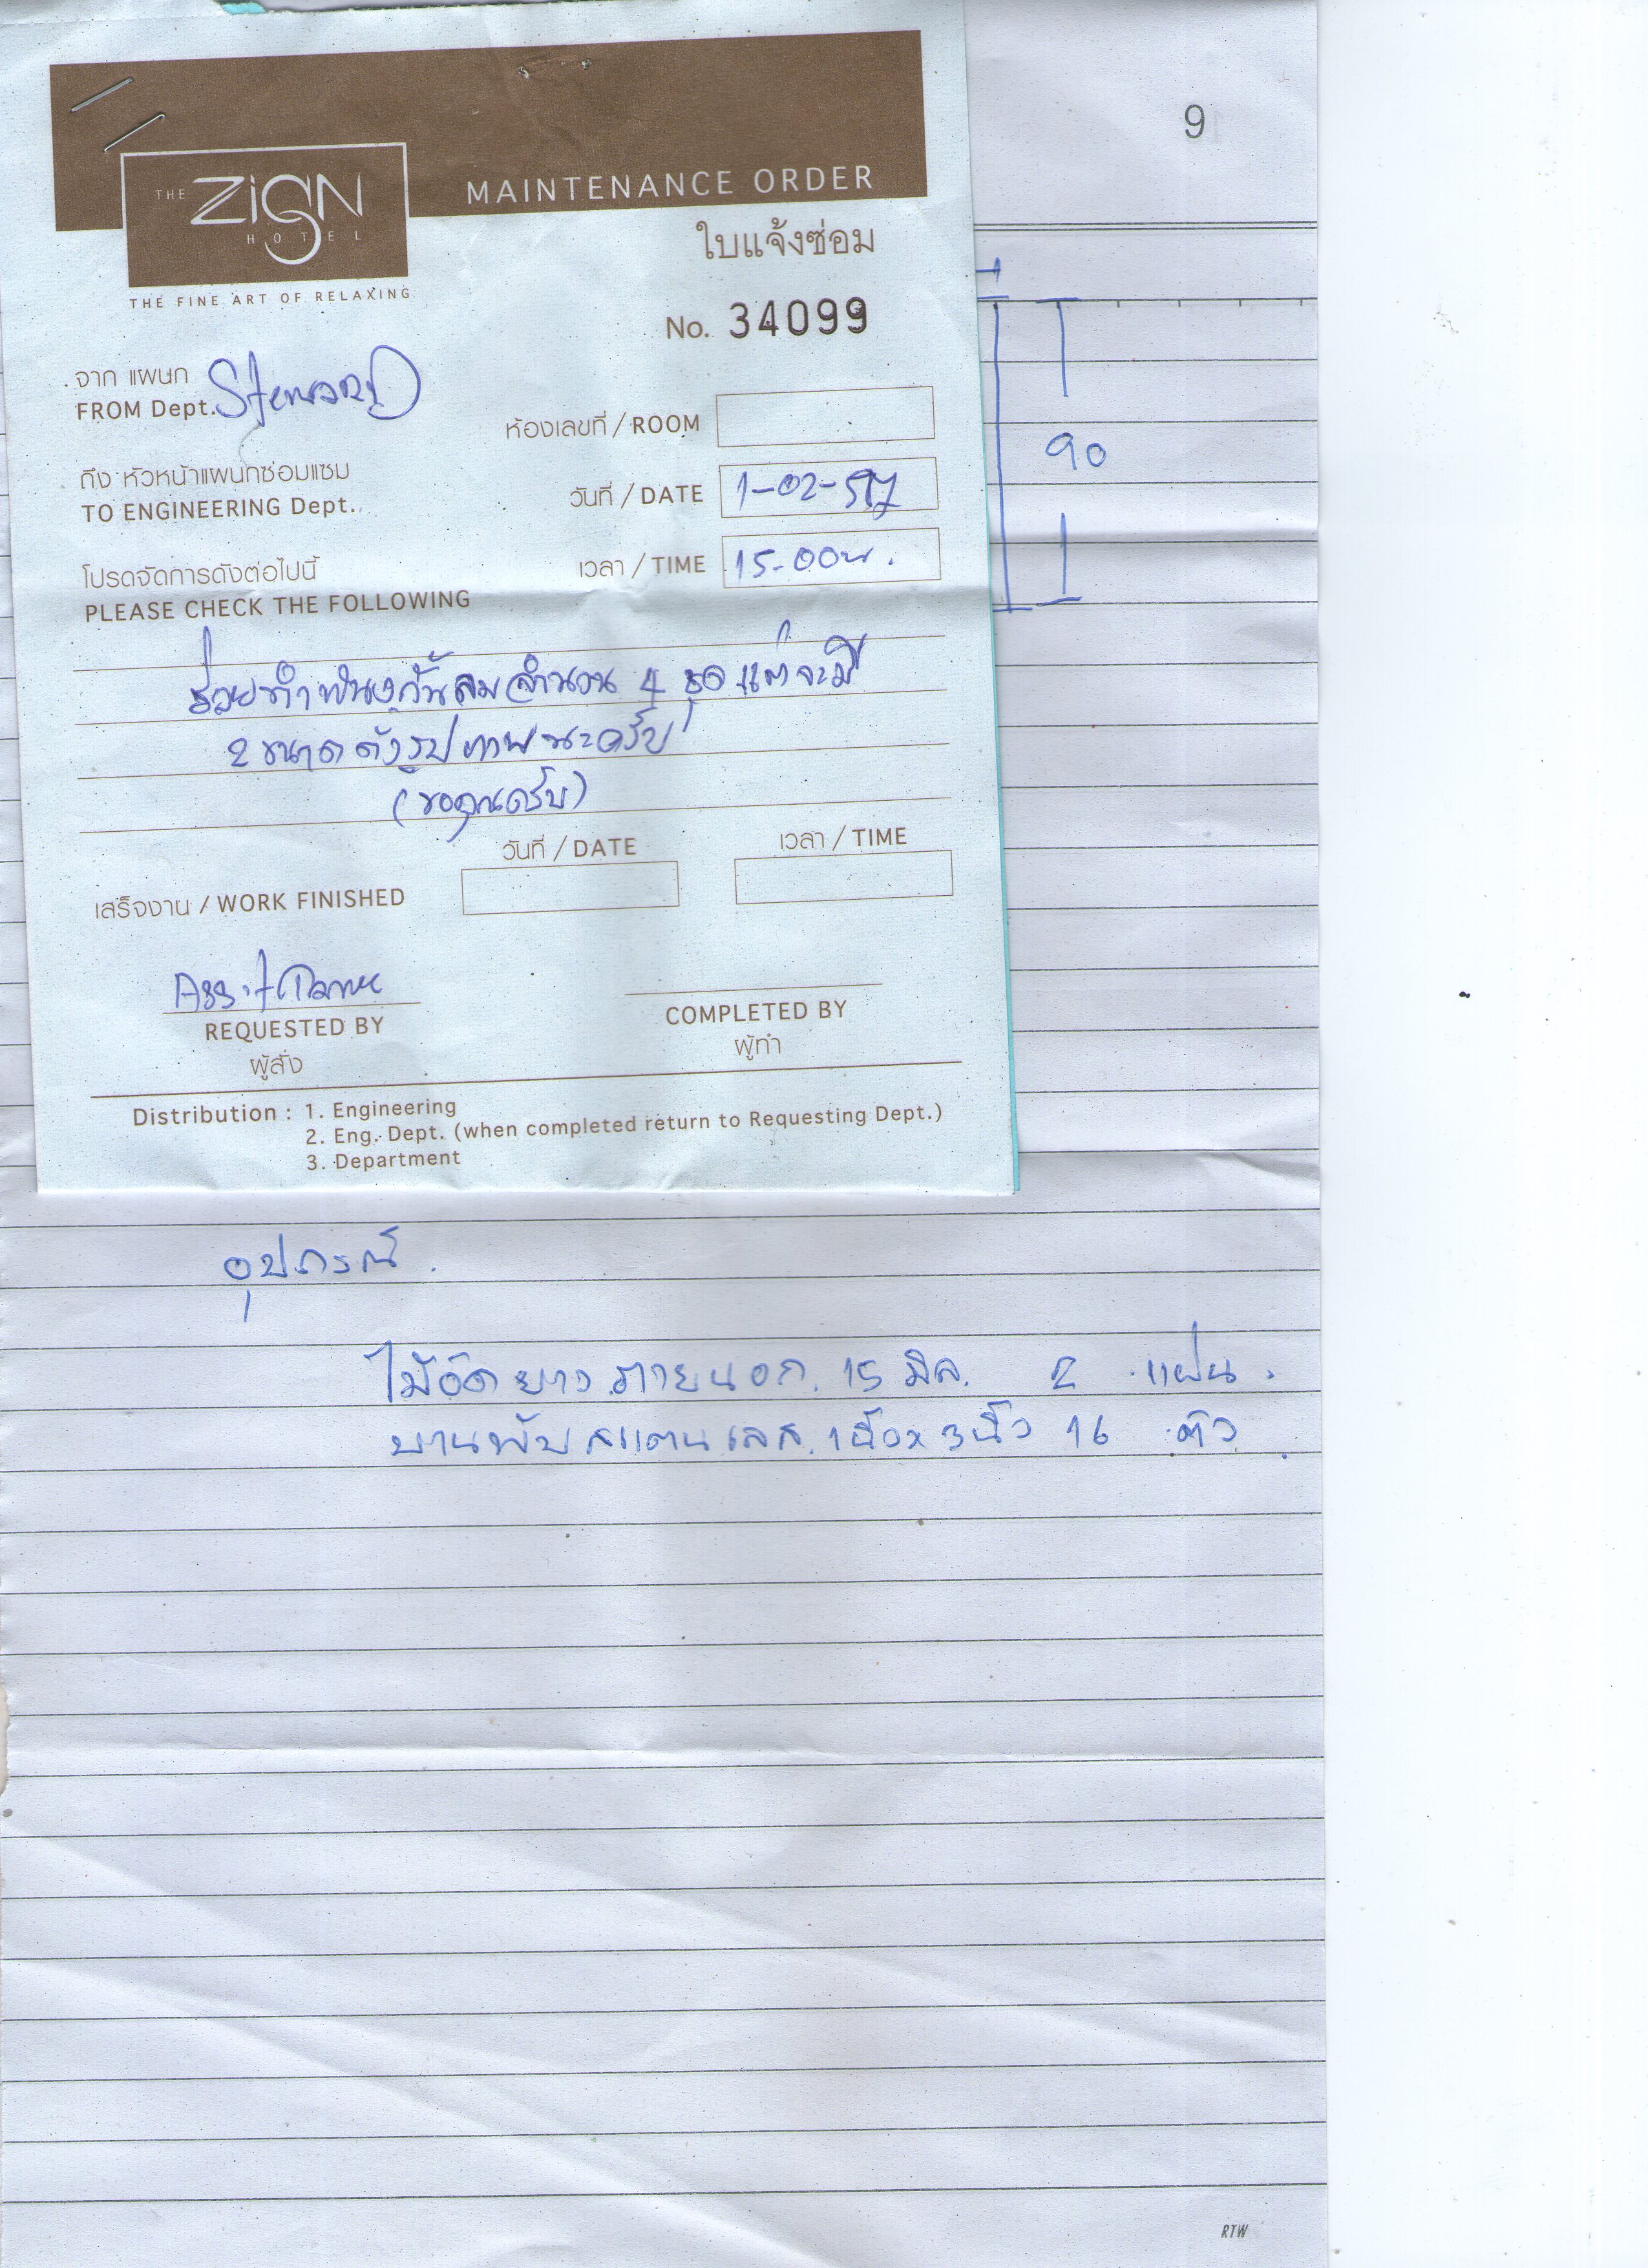 9
THE ZIGN
HOTEL
THE FINE ART OF RELAXING
MAINTENANCE ORDER
ใบแจ้งซ่อม
No. 34099
จาก แผนก
FROM Dept. Steward
ห้องเลขที่ / ROOM
ถึง หัวหน้าแผนกซ่อมแซม
TO ENGINEERING Dept.
วันที่ / DATE 1-02-57
90
โปรดจัดการดังต่อไปนี้
PLEASE CHECK THE FOLLOWING
เวลา / TIME 15.00น.
ช่วยทำพนังกั้นลมจำนวน 4 ชุด แต่จะมี
2 ขนาดดังรูปภาพนะครับ
(ขอคุณครับ)
วันที่ / DATE เวลา / TIME
เสร็จงาน / WORK FINISHED
REQUESTED BY
ผู้สั่ง
COMPLETED BY
ผู้ทำ
Distribution : 1. Engineering
2. Eng. Dept. (when completed return to Requesting Dept.)
3. Department
อุปกรณ์.
ไม้อัดยางภายนอก. 15 มิล. 2 แผ่น.
บานพับสแตนเลส. 1นิ้วx3นิ้ว 16 ตัว.
RTW